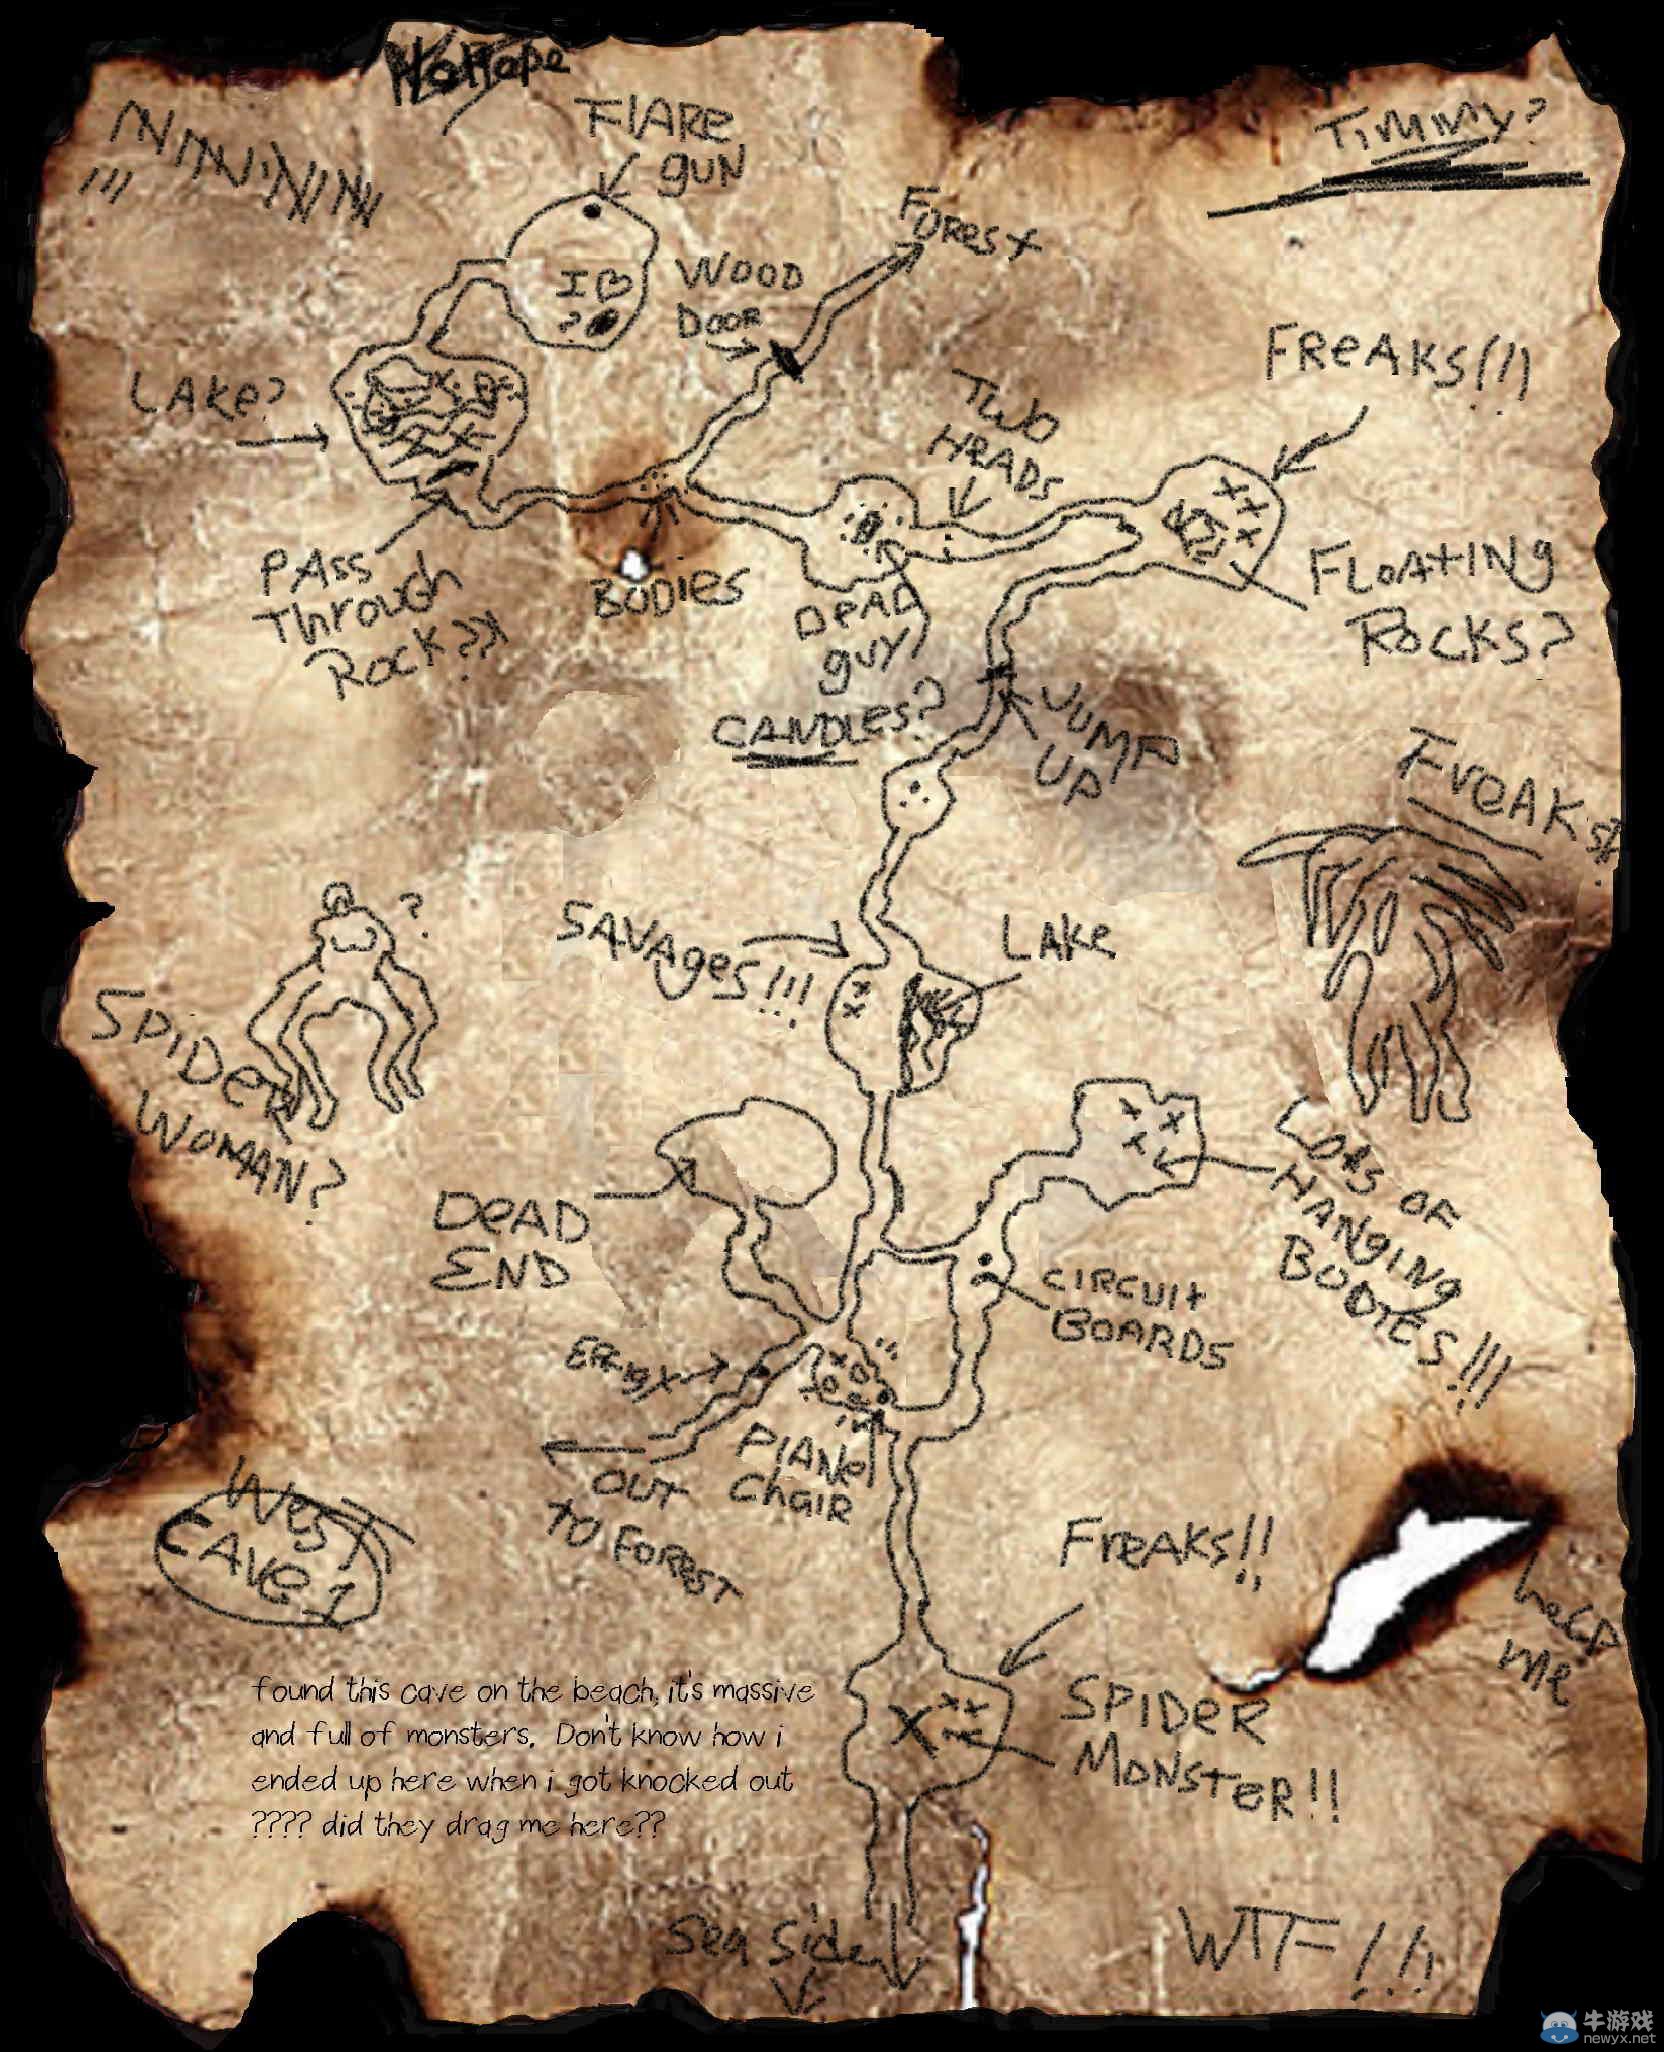 No Hope
FlARe
gUN
Timmy?
Forest
I
?
WOOD
DOOR
LAKe?
FReAKS!!!
TWO
HeADS
PAss
Through
ROCK???
BODies
DeAD
guy
CANDles?
FLOAtINg
ROCKS?
JUMP
UP
FreAKs!
SAVAgeS!!!
LAKe
?
SPIDeR
WOMAN?
DeAD
END
CIRCUIt
BOARDS
LOts OF
HANgINg
BODIES!!!
PlANe
ChAIR
OUT
TO FOREST
West
CAVe 1
FreAKs!!
help
me
found this cave on the beach, it's massive
and full of monsters. Don't know how i
ended up here when i got knocked out
???? did they drag me here??
SPIDeR
MONSTeR!!
Sea Side
WTF!!!
牛游戏
newyx.net